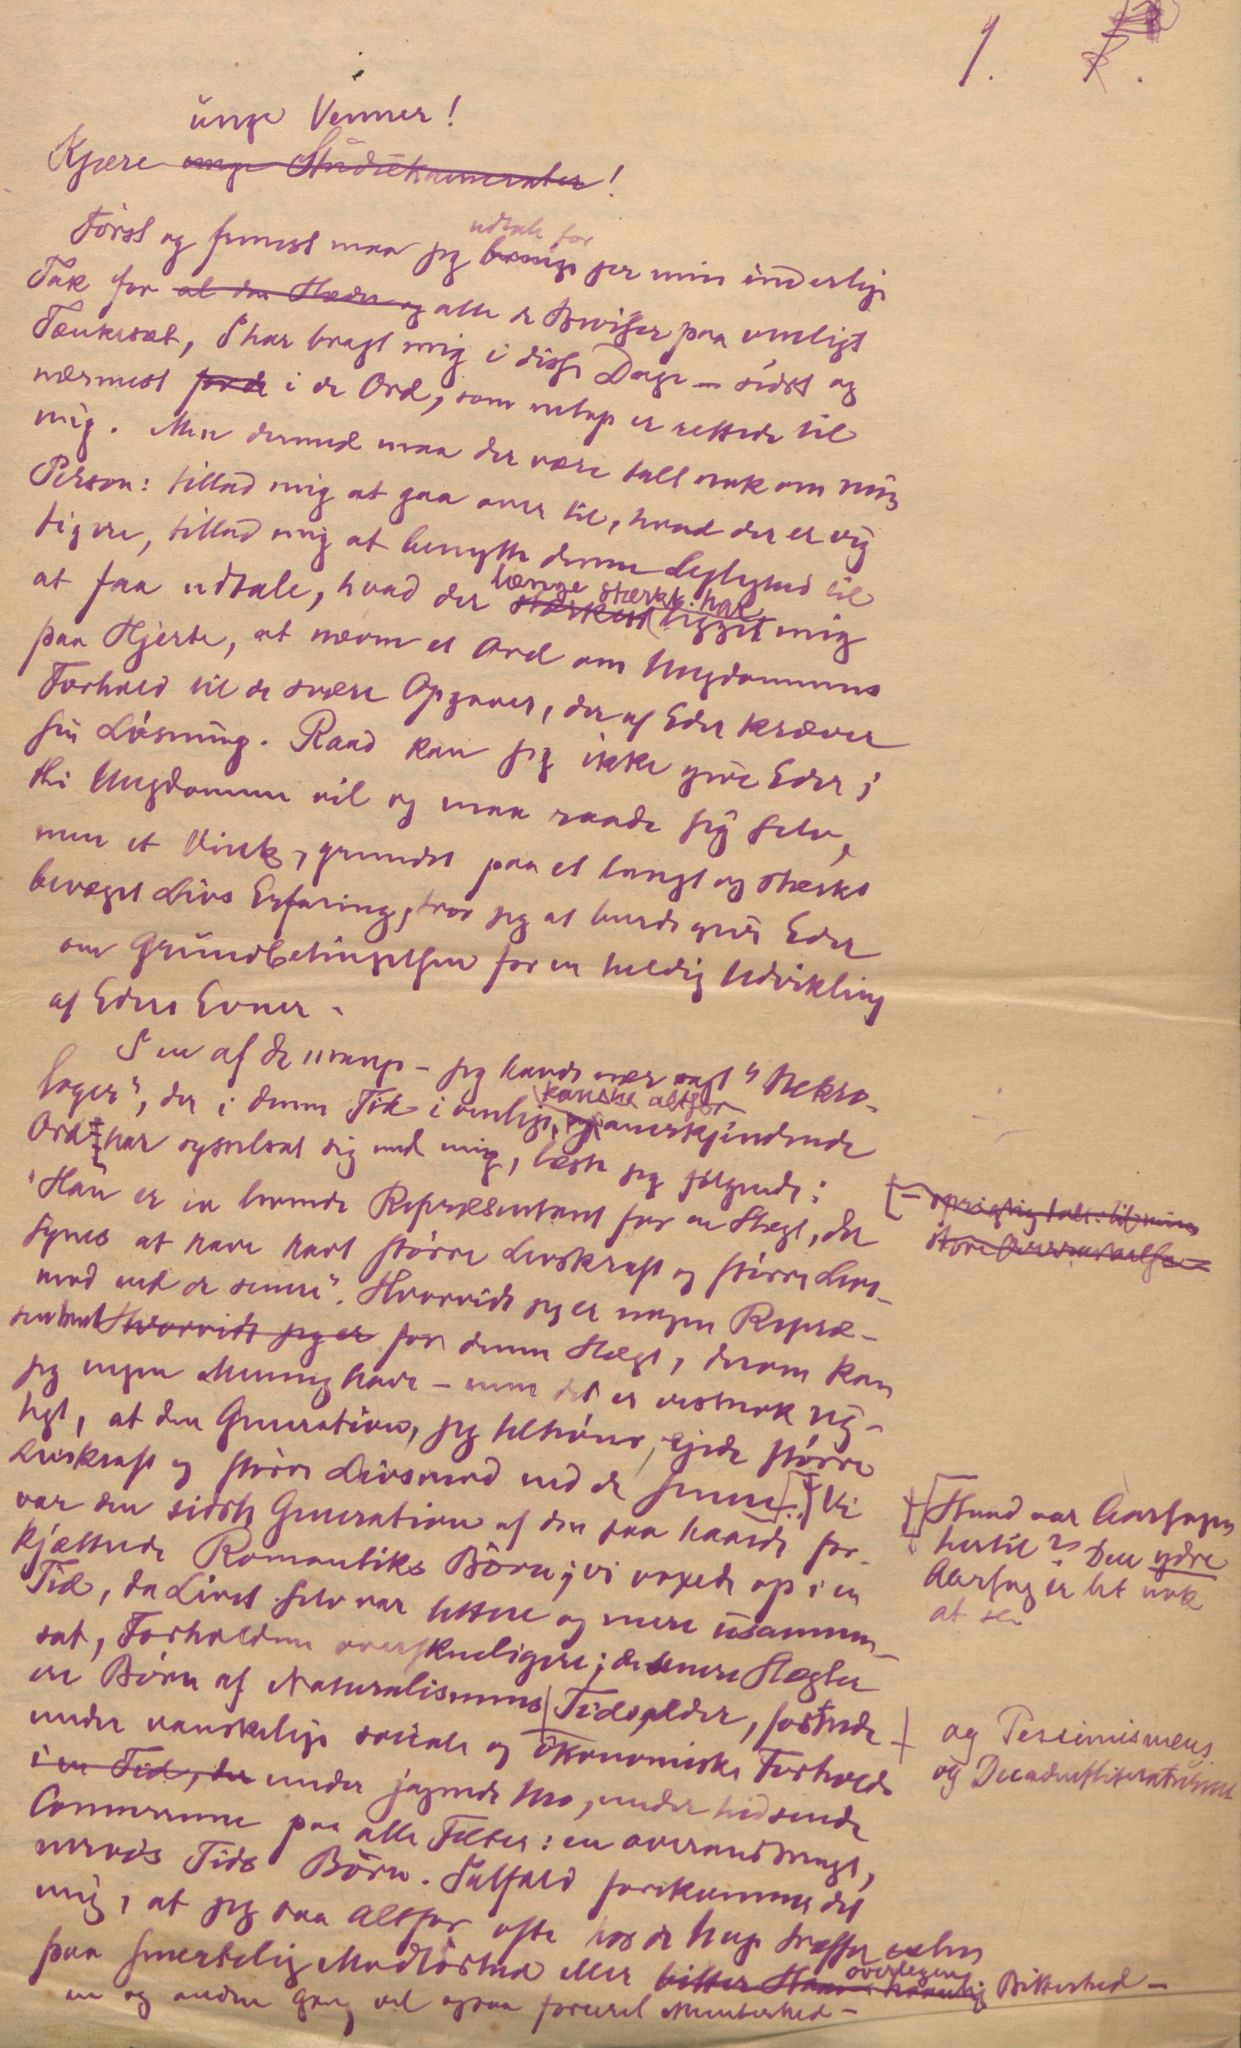 1.
unge Venner!
Kjære unge Studiekamerater!
Først og fremst maa jeg bringe udtale for jer min inderlige
Tak for al den Hæder og alle de Beviser paa venligt
Tænkesæt, I har bragt mig i disse Dage – sidst og
nærmest for de i de Ord, som netop er rettede til
mig. Men dermed maa der være talt nok om min
Person: tillad mig at gaa over til, hvad der er vig
tigere, tillad mig at benytte denne Leilighed til
at faa udtale, hvad der stærkest længe stærkt har ligget mig
paa Hjerte, at nævne et Ord om Ungdommens
Forhold til de svære Opgaver, der af Eder kræver
sin Løsning. Raad kan jeg ikke give Eder;
thi Ungdommen vil og maa raade sig selv,
men et Vink, grundet paa et langt og stærkt
bevæget Livs Erfaring, tror jeg at burde give Eder
om Grundbetingelsen for en heldig Udvikling
af Eders Evner.
I en af de mange – jeg havde nær sagt "Nekro-
loger", der i denne Tid i venlige, og kanske altfor anerkjendende
Ord har sysselsat sig med mig, læste jeg følgende:
– oprigtig talt: til min
store
"Han er en levende Repræsentant for en Slægt, der
synes at have havt større Livskraft og større Livs-
mod end de senere". Hvorvidt jeg er nogen Repræ-
sentant Hvorvidt jeg er for denne Slægt, derom kan
jeg ingen Mening have – men det er vistnok rig-
tigt, at den Generation, jeg tilhører, ejede større
Livskraft og større Livsmod end de senere. Vi
Hvad var Aarsagen
hertil? Den ydre
Aarsag er let nok
at se
var den sidste Generation af den saa haardt for-
kjættrede Romantiks Børn; vi voxede op i en
Tid, da Livet selv var lettere og mere usammen-
sat, Forholdene overskueligere; de senere Slægter
ere Børn af Naturalismens Tidsalder, fostrede
og Pessimismens
og Decadentliteraturens
under vanskelige sociale og økonomiske Forholde
i en Tid, der under jagende Uro, under hidsende
Concurrence paa alle Felter: en overanstrengt,
nervøs Tids Børn. Ialfald forekommer det
mig, at jeg saa altfor ofte hos de Unge træffer enten
paa smertelig Modløshed eller bitter Haan overlegen haanlig Bitterhed –
en og anden Gang vel ogsaa forceret Munterhed –